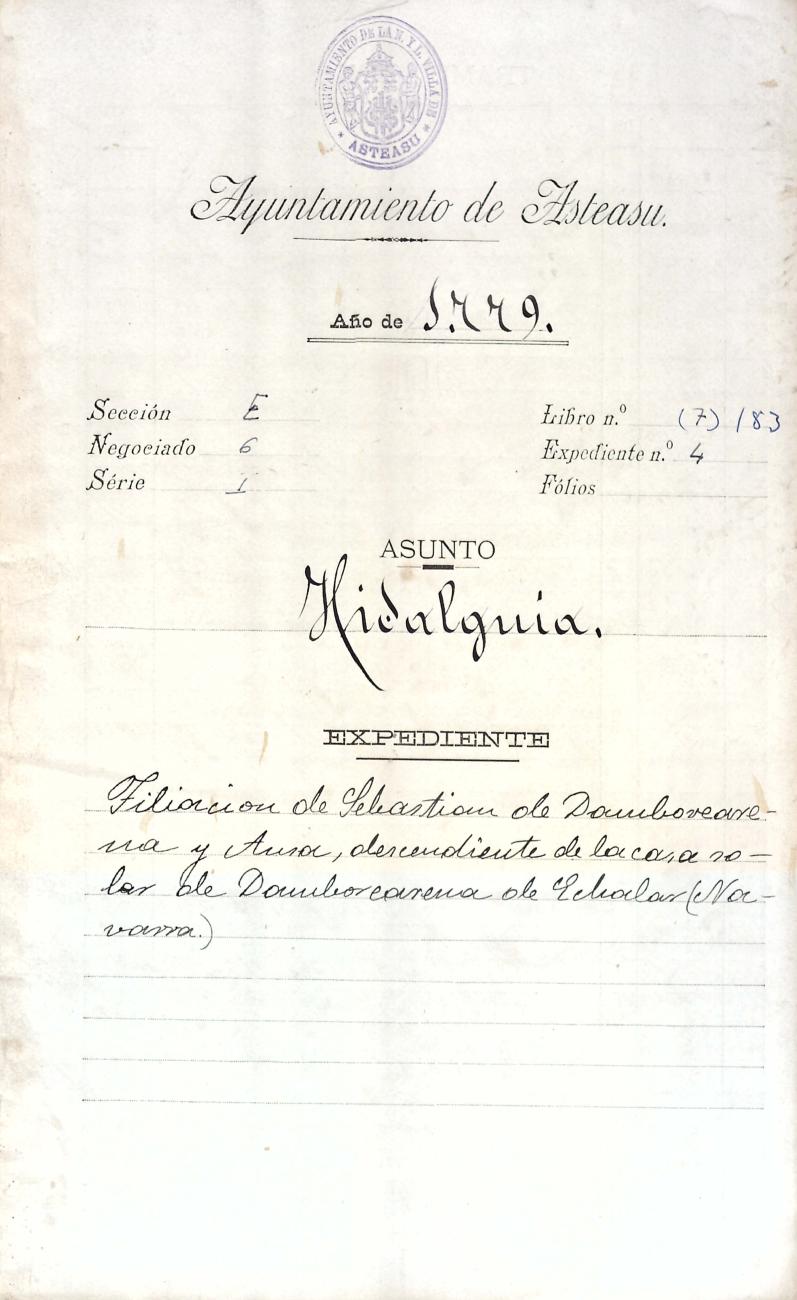 AYUNTAMIENTO DE LA N. Y L. VILLA DE
ASTEASU
Ayuntamiento de Asteasu.
Año de 1779.
Sección E
Negociado 6
Série I
Libro n.º (7) 183
Expediente n.º 4
Fólios
ASUNTO
Hidalguia.
EXPEDIENTE
Filiacion de Sebastian de Damboreare-
na y Ausa, descendiente de la casa so-
lar de Damborearena de Echalar (Na-
varra.)